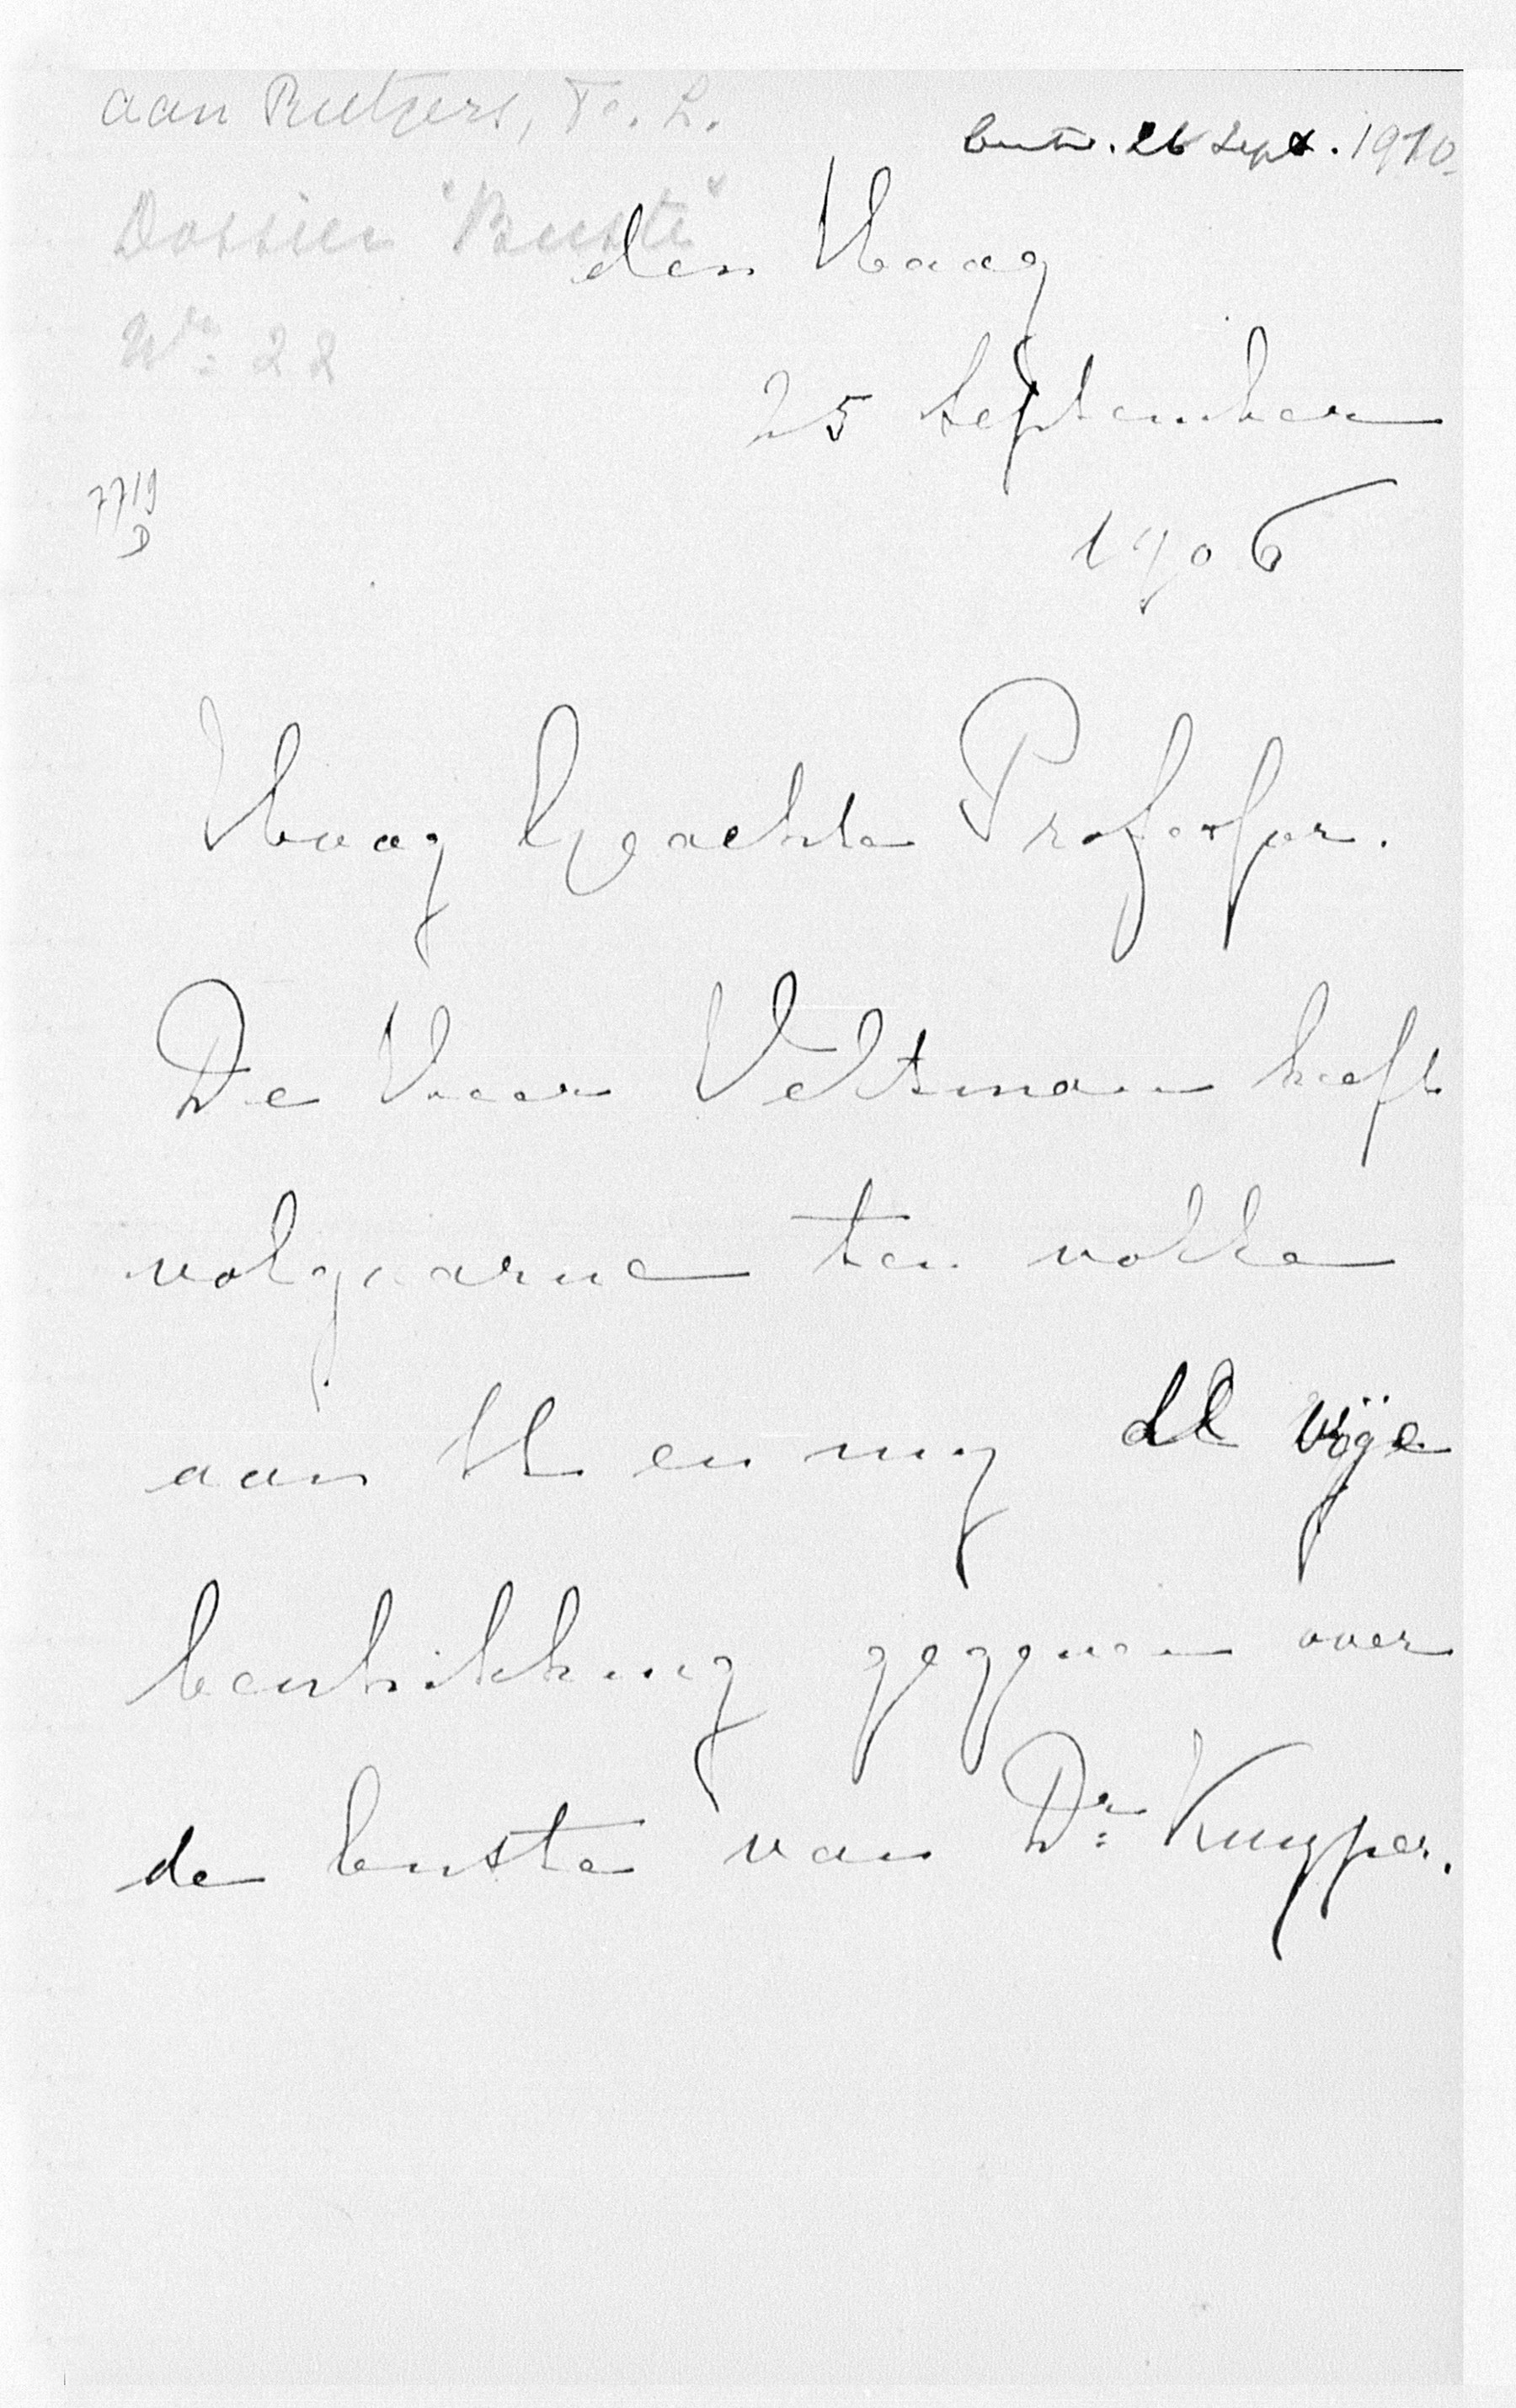 aan Rutgers, F. L.
beantw. 26 Sept. 1910.
Dossier "Buste"
No. 22
den Haag
25 September
7719
D
1906
Hoog Geachte Professor.
De Heer Veltman heeft
volgaarne ten volle
aan U en my de vrije
beschikking gegeven over
de buste van Dr. Kuyper.